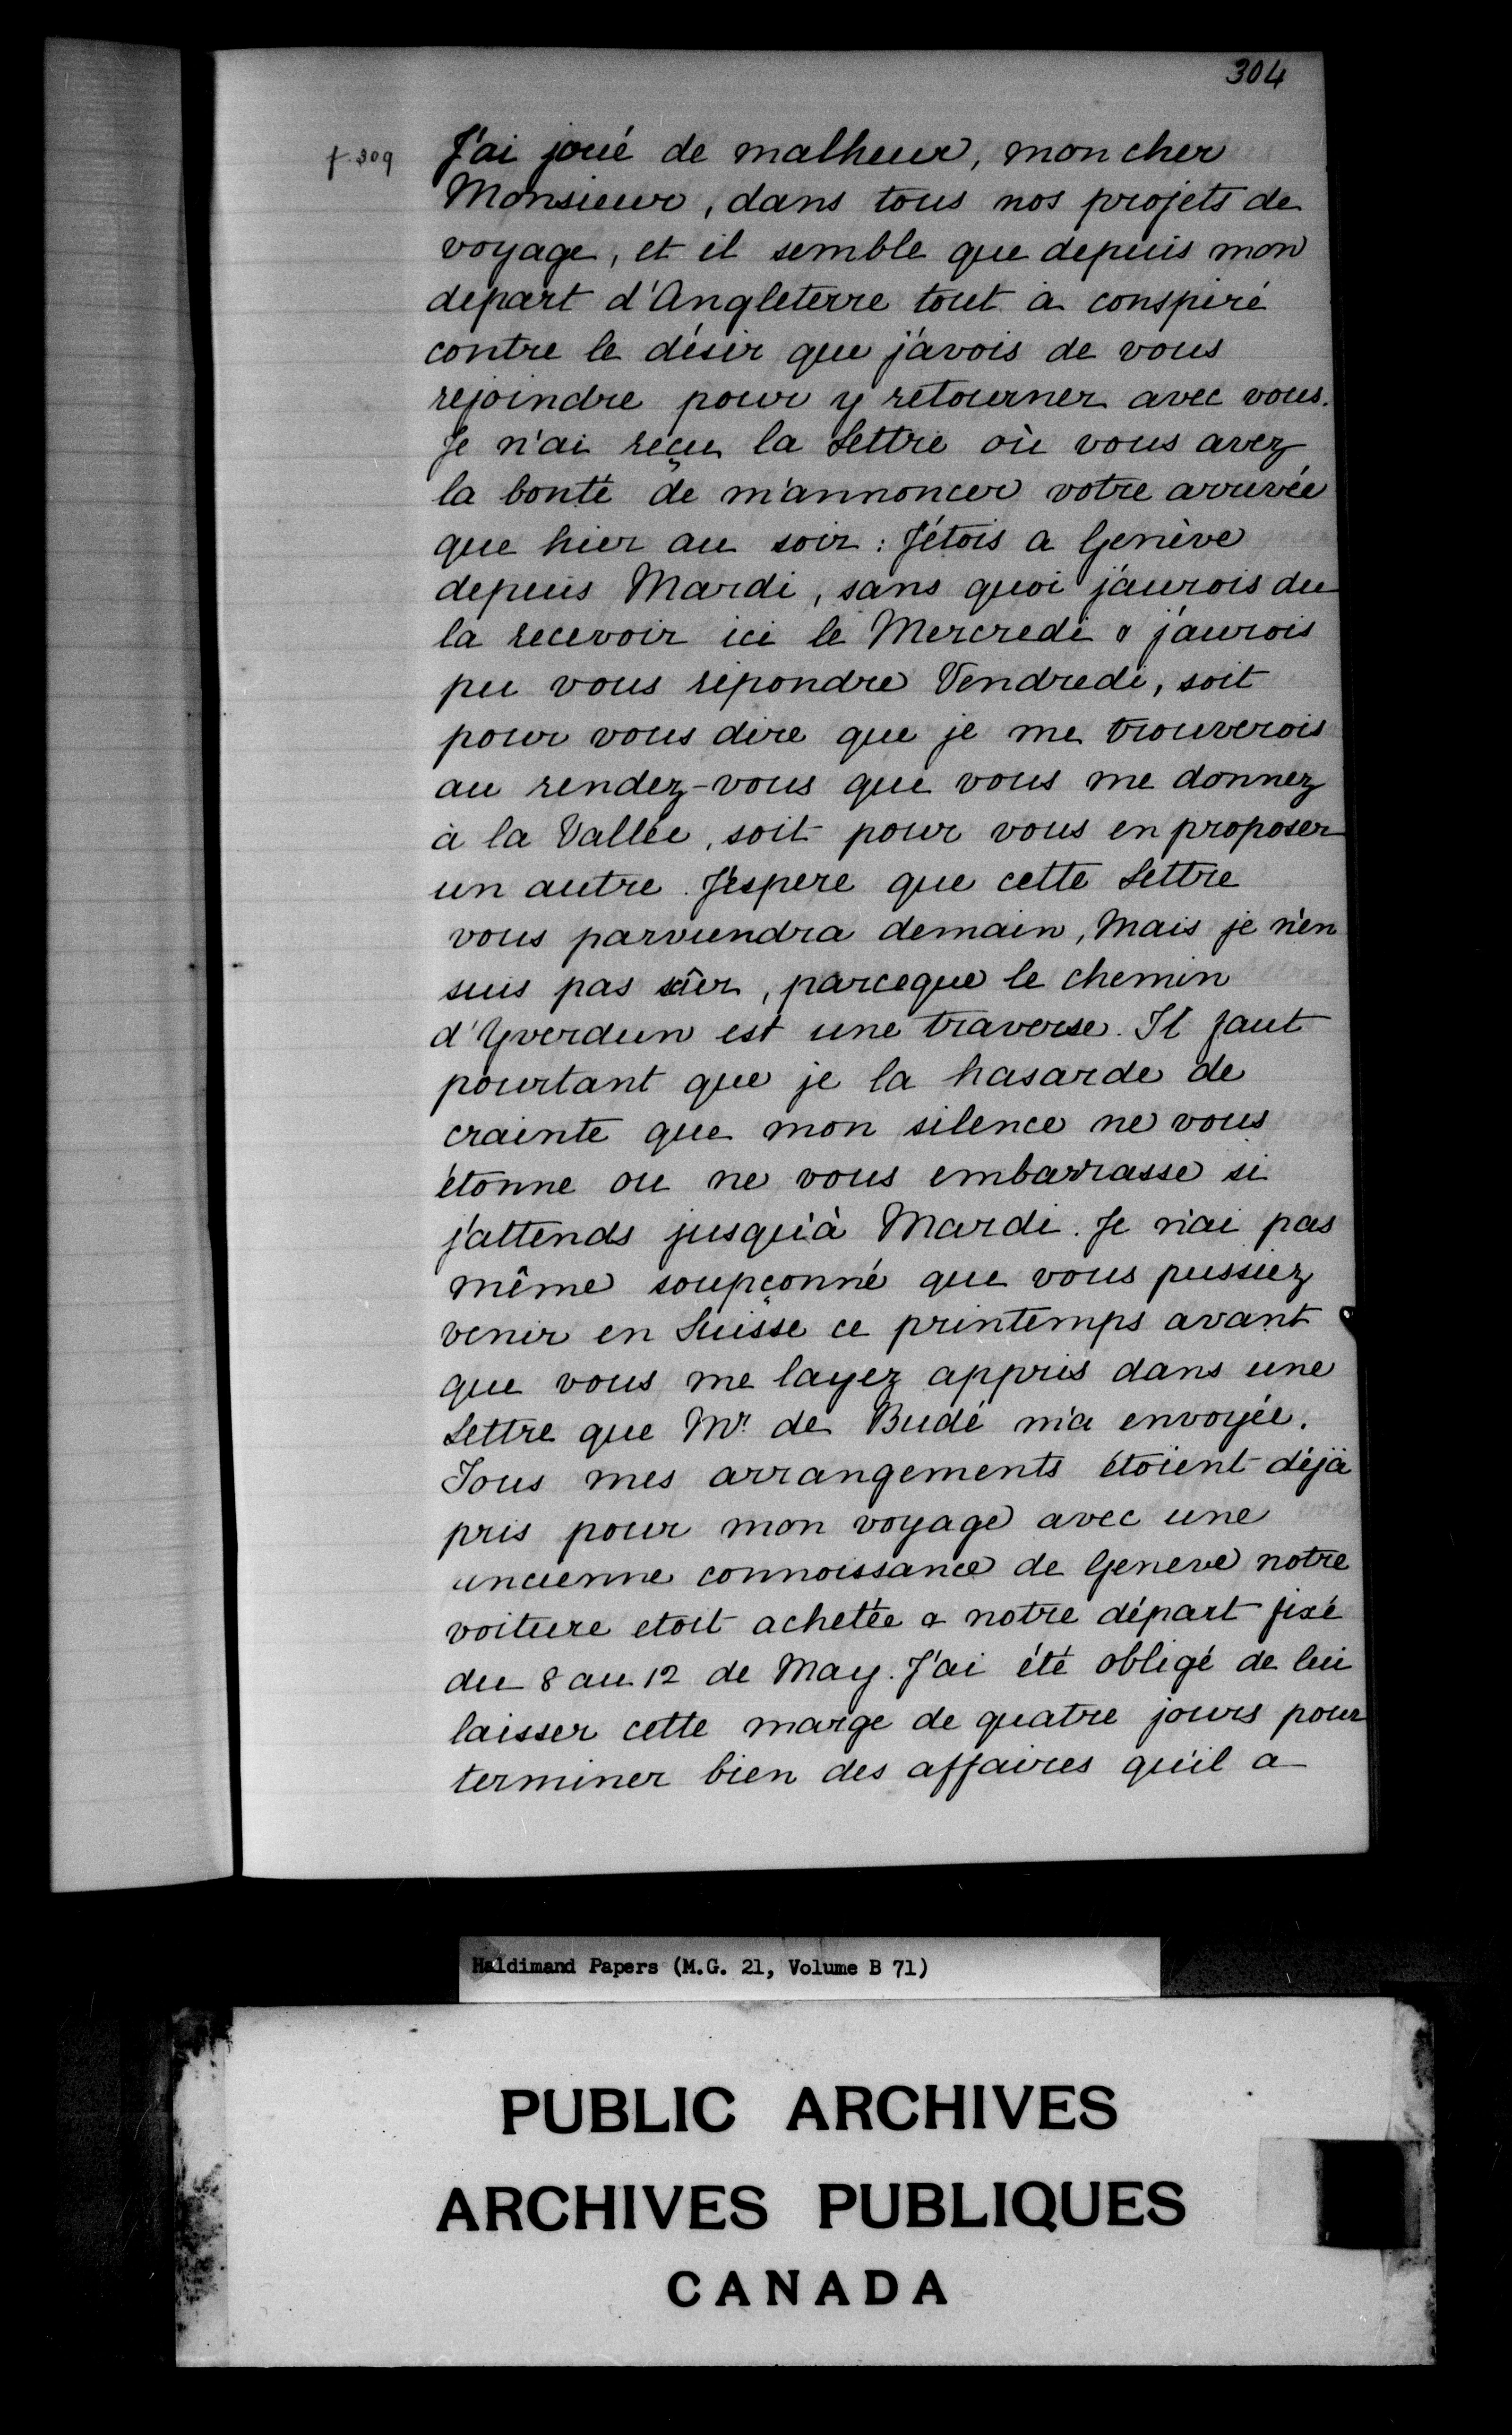 304
f. 309
J'ai joué de malheur, mon cher
Monsieur, dans tous nos projets de
voyage, et il semble que depuis mon
départ d'Angleterre tout a conspiré
contre le désir que j'avois de vous
rejoindre pour y retourner avec vous.
Je n'ai reçu la Lettre où vous avez
la bonté de m'annoncer votre arrivée
que hier au soir : J'étois a Genève
depuis Mardi, sans quoi j'aurois du
la recevoir ici le Mercredi & j'aurois
pu vous répondre Vendredi, soit
pour vous dire que je me trouverois
au rendez-vous que vous me donnez
à la Vallée, soit pour vous en proposer
un autre. J'espere que cette Lettre
vous parviendra demain, Mais je n'en
suis pas sûr, parceque le chemin
d'Yverdun est une traverse. Il faut
pourtant que je la hasarde de
crainte que mon silence ne vous
étonne ou ne vous embarrasse si
j'attends jusqu'à Mardi. Je n'ai pas
même soupçonné que vous pussiez
venir en Suisse ce printemps avant
que vous me layez appris dans une
Lettre que Mr. de Budé m'a envoyée.
Tous mes arrangements étoient déjà
pris pour mon voyage avec une
ancienne connoissance de Geneve notre
voiture etoit achetée & notre départ fixé
du 8 au 12 de May. J'ai été obligé de lui
laisser cette marge de quatre jours pour
terminer bien des affaires qu'il a
Haldimand Papers (M.G. 21, Volume B 71)
PUBLIC ARCHIVES
ARCHIVES PUBLIQUES
CANADA